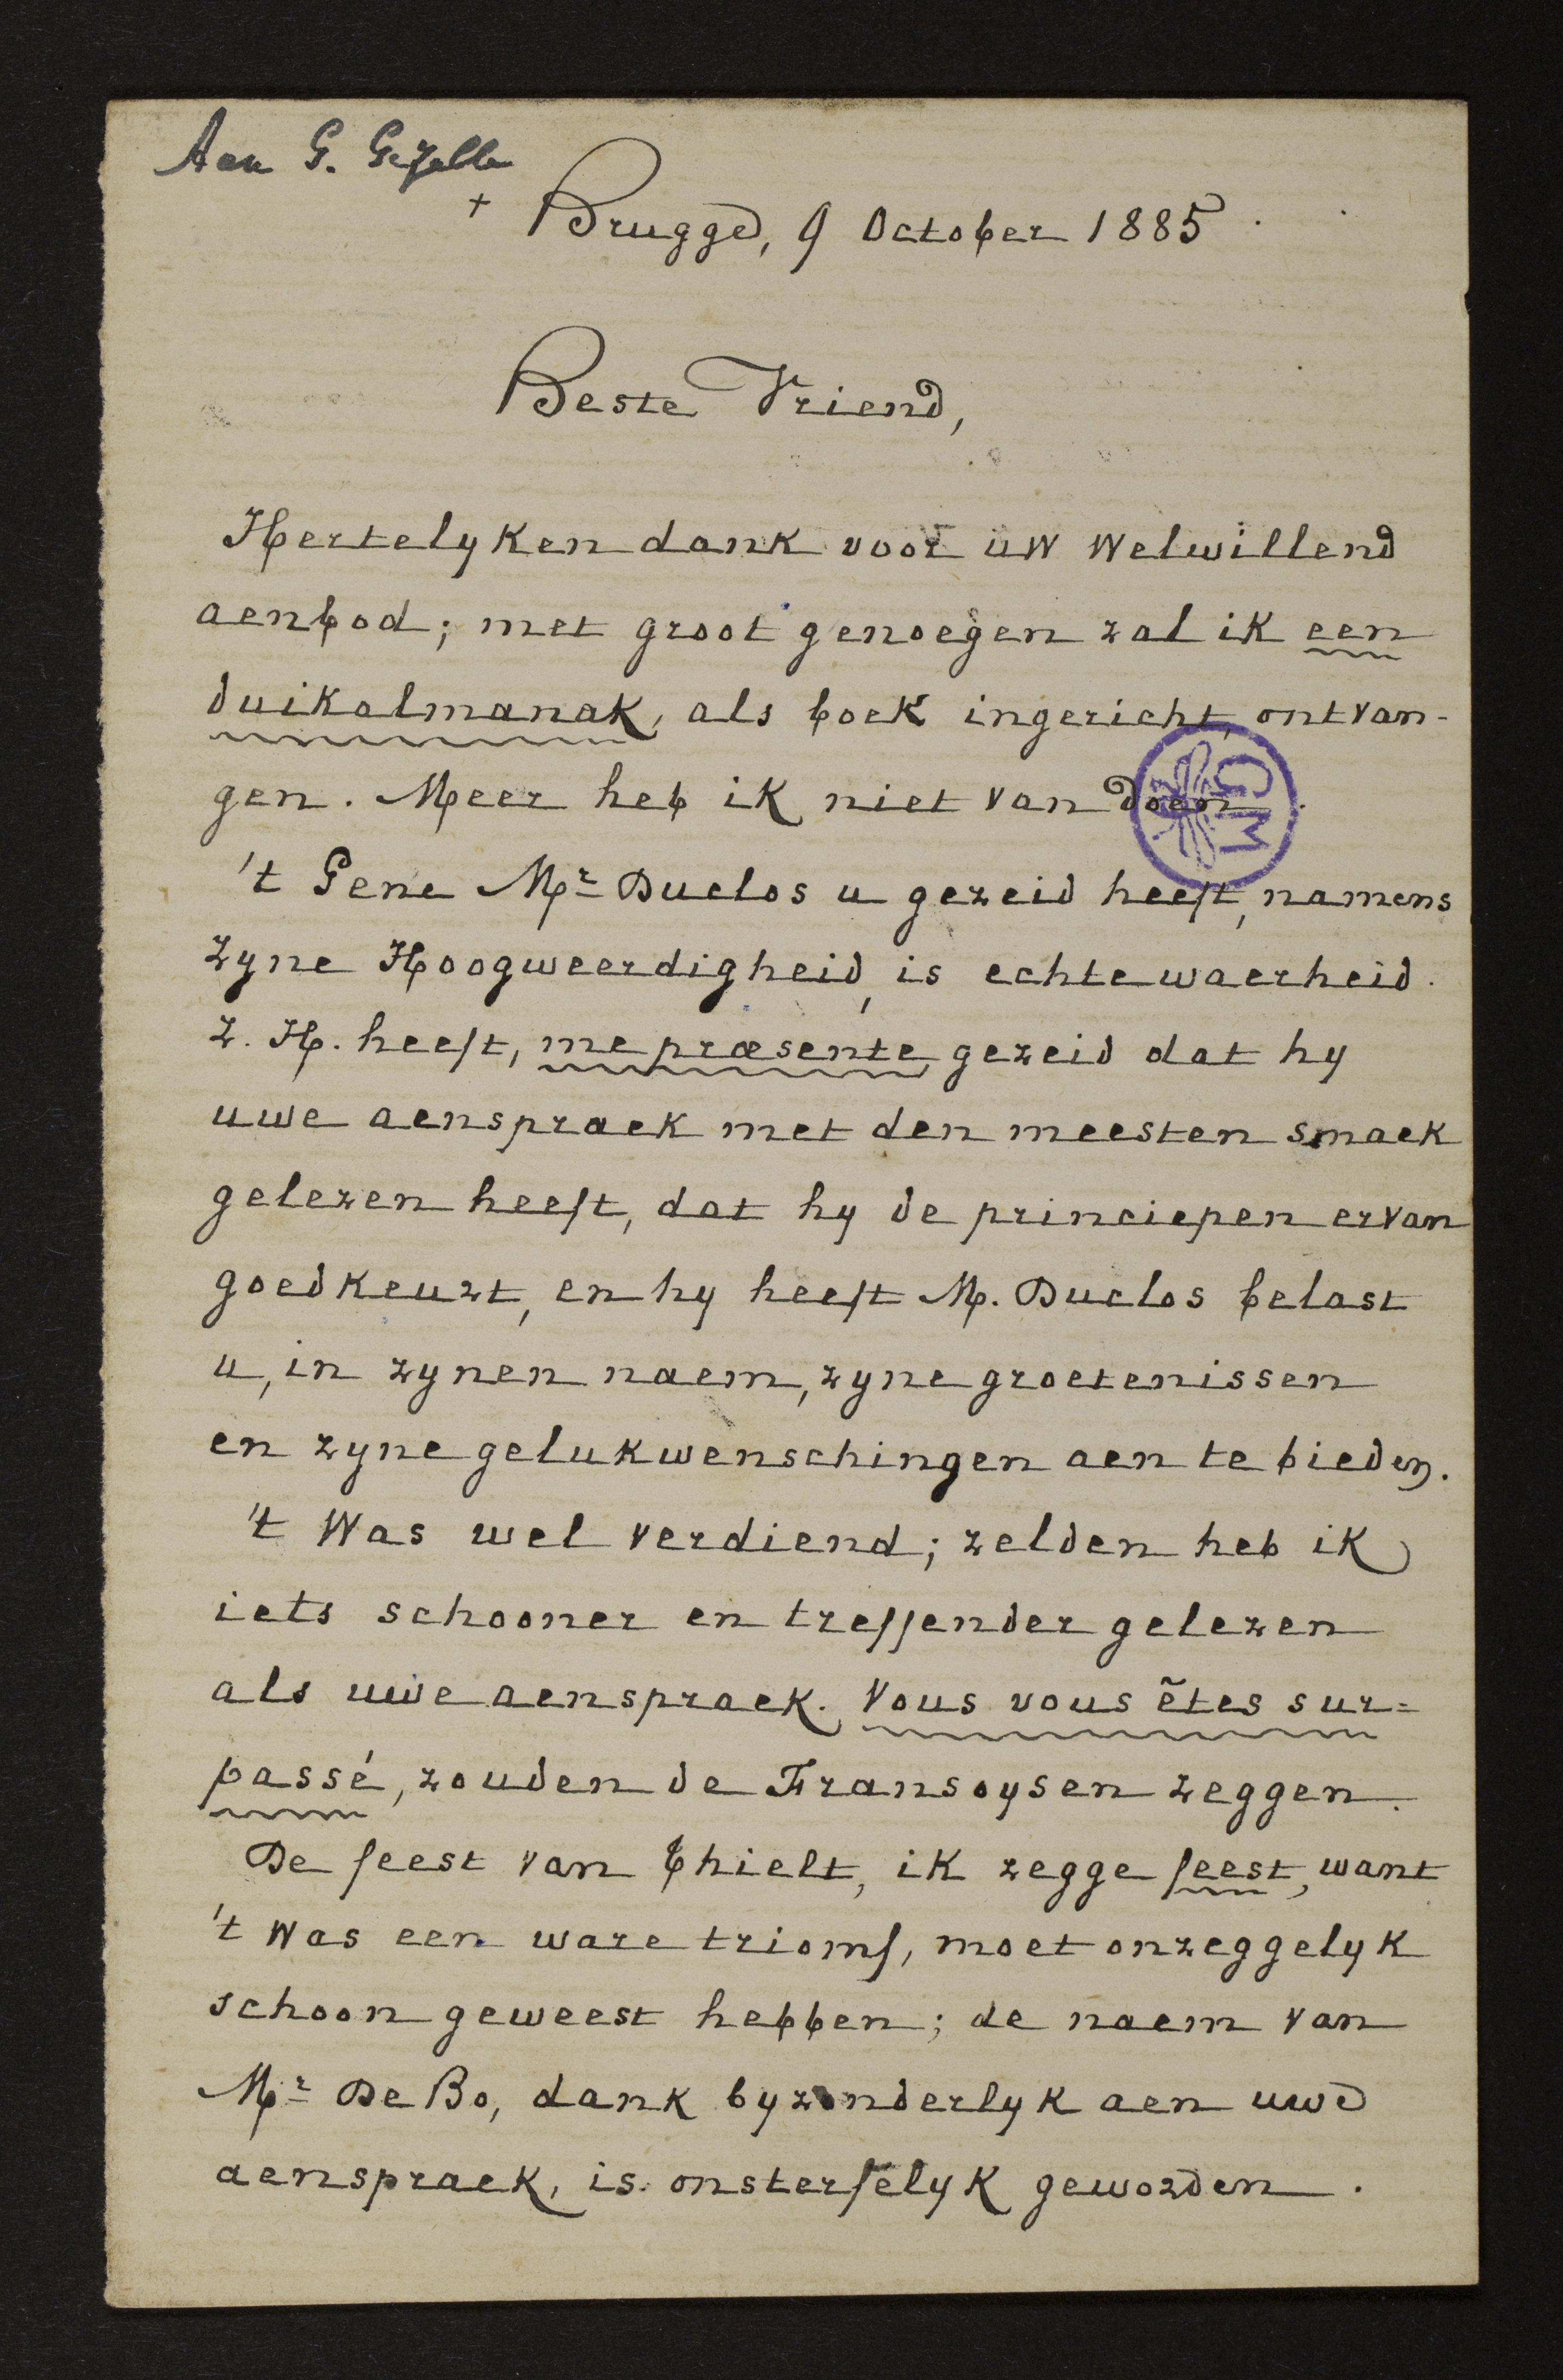 Aan G. Gezelle
+ Brugge, 9 October 1885.
Beste Vriend,
Hertelyken dank voor uw welwillend
aenbod; met groot genoegen zal ik een
duikalmanak, als boek ingericht, ontvan-
gen. Meer heb ik niet van doen.
't Gene Mr Duclos u gezeid heeft, namens
Zyne Hoogweerdigheid, is echte waerheid.
Z. H. heeft, me præsente gezeid dat hy
uwe aenspraek met den meesten smaek
gelezen heeft, dat hy de princiepen ervan
goedkeurt, en hy heeft M. Duclos belast
u, in zynen naem, zyne groetenissen
en zyne gelukwenschingen aen te bieden.
't Was wel verdiend; zelden heb ik
iets schooner en treffender gelezen
als uwe aenspraek. Vous vous êtes sur=
passé, zouden de Fransoysen zeggen.
De feest van Thielt, ik zegge feest, want
't was een ware triomf, moet onzeggelyk
schoon geweest hebben; de naem van
Mr De Bo, dank byzonderlyk aen uwe
aenspraek, is onsterfelyk geworden.
GM